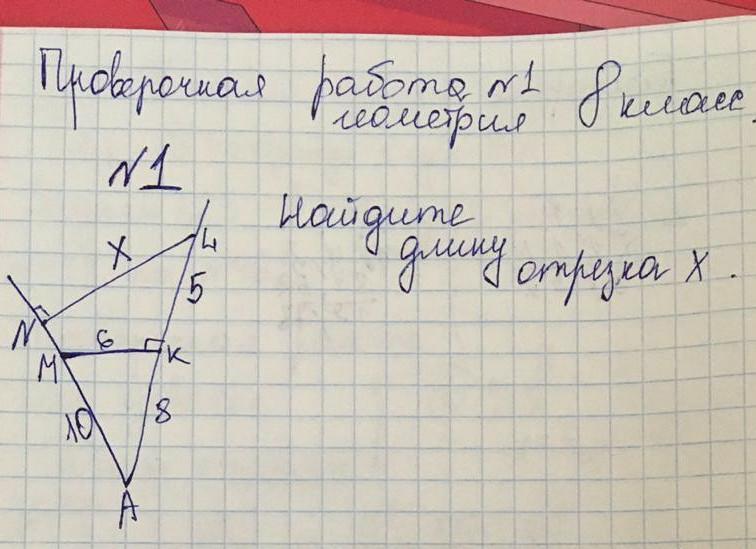 Проверочная работа №1
геометрия 8 класс.
№1
Найдите
длину
отрезка x.
x
L
5
N
6
M
K
10
8
A